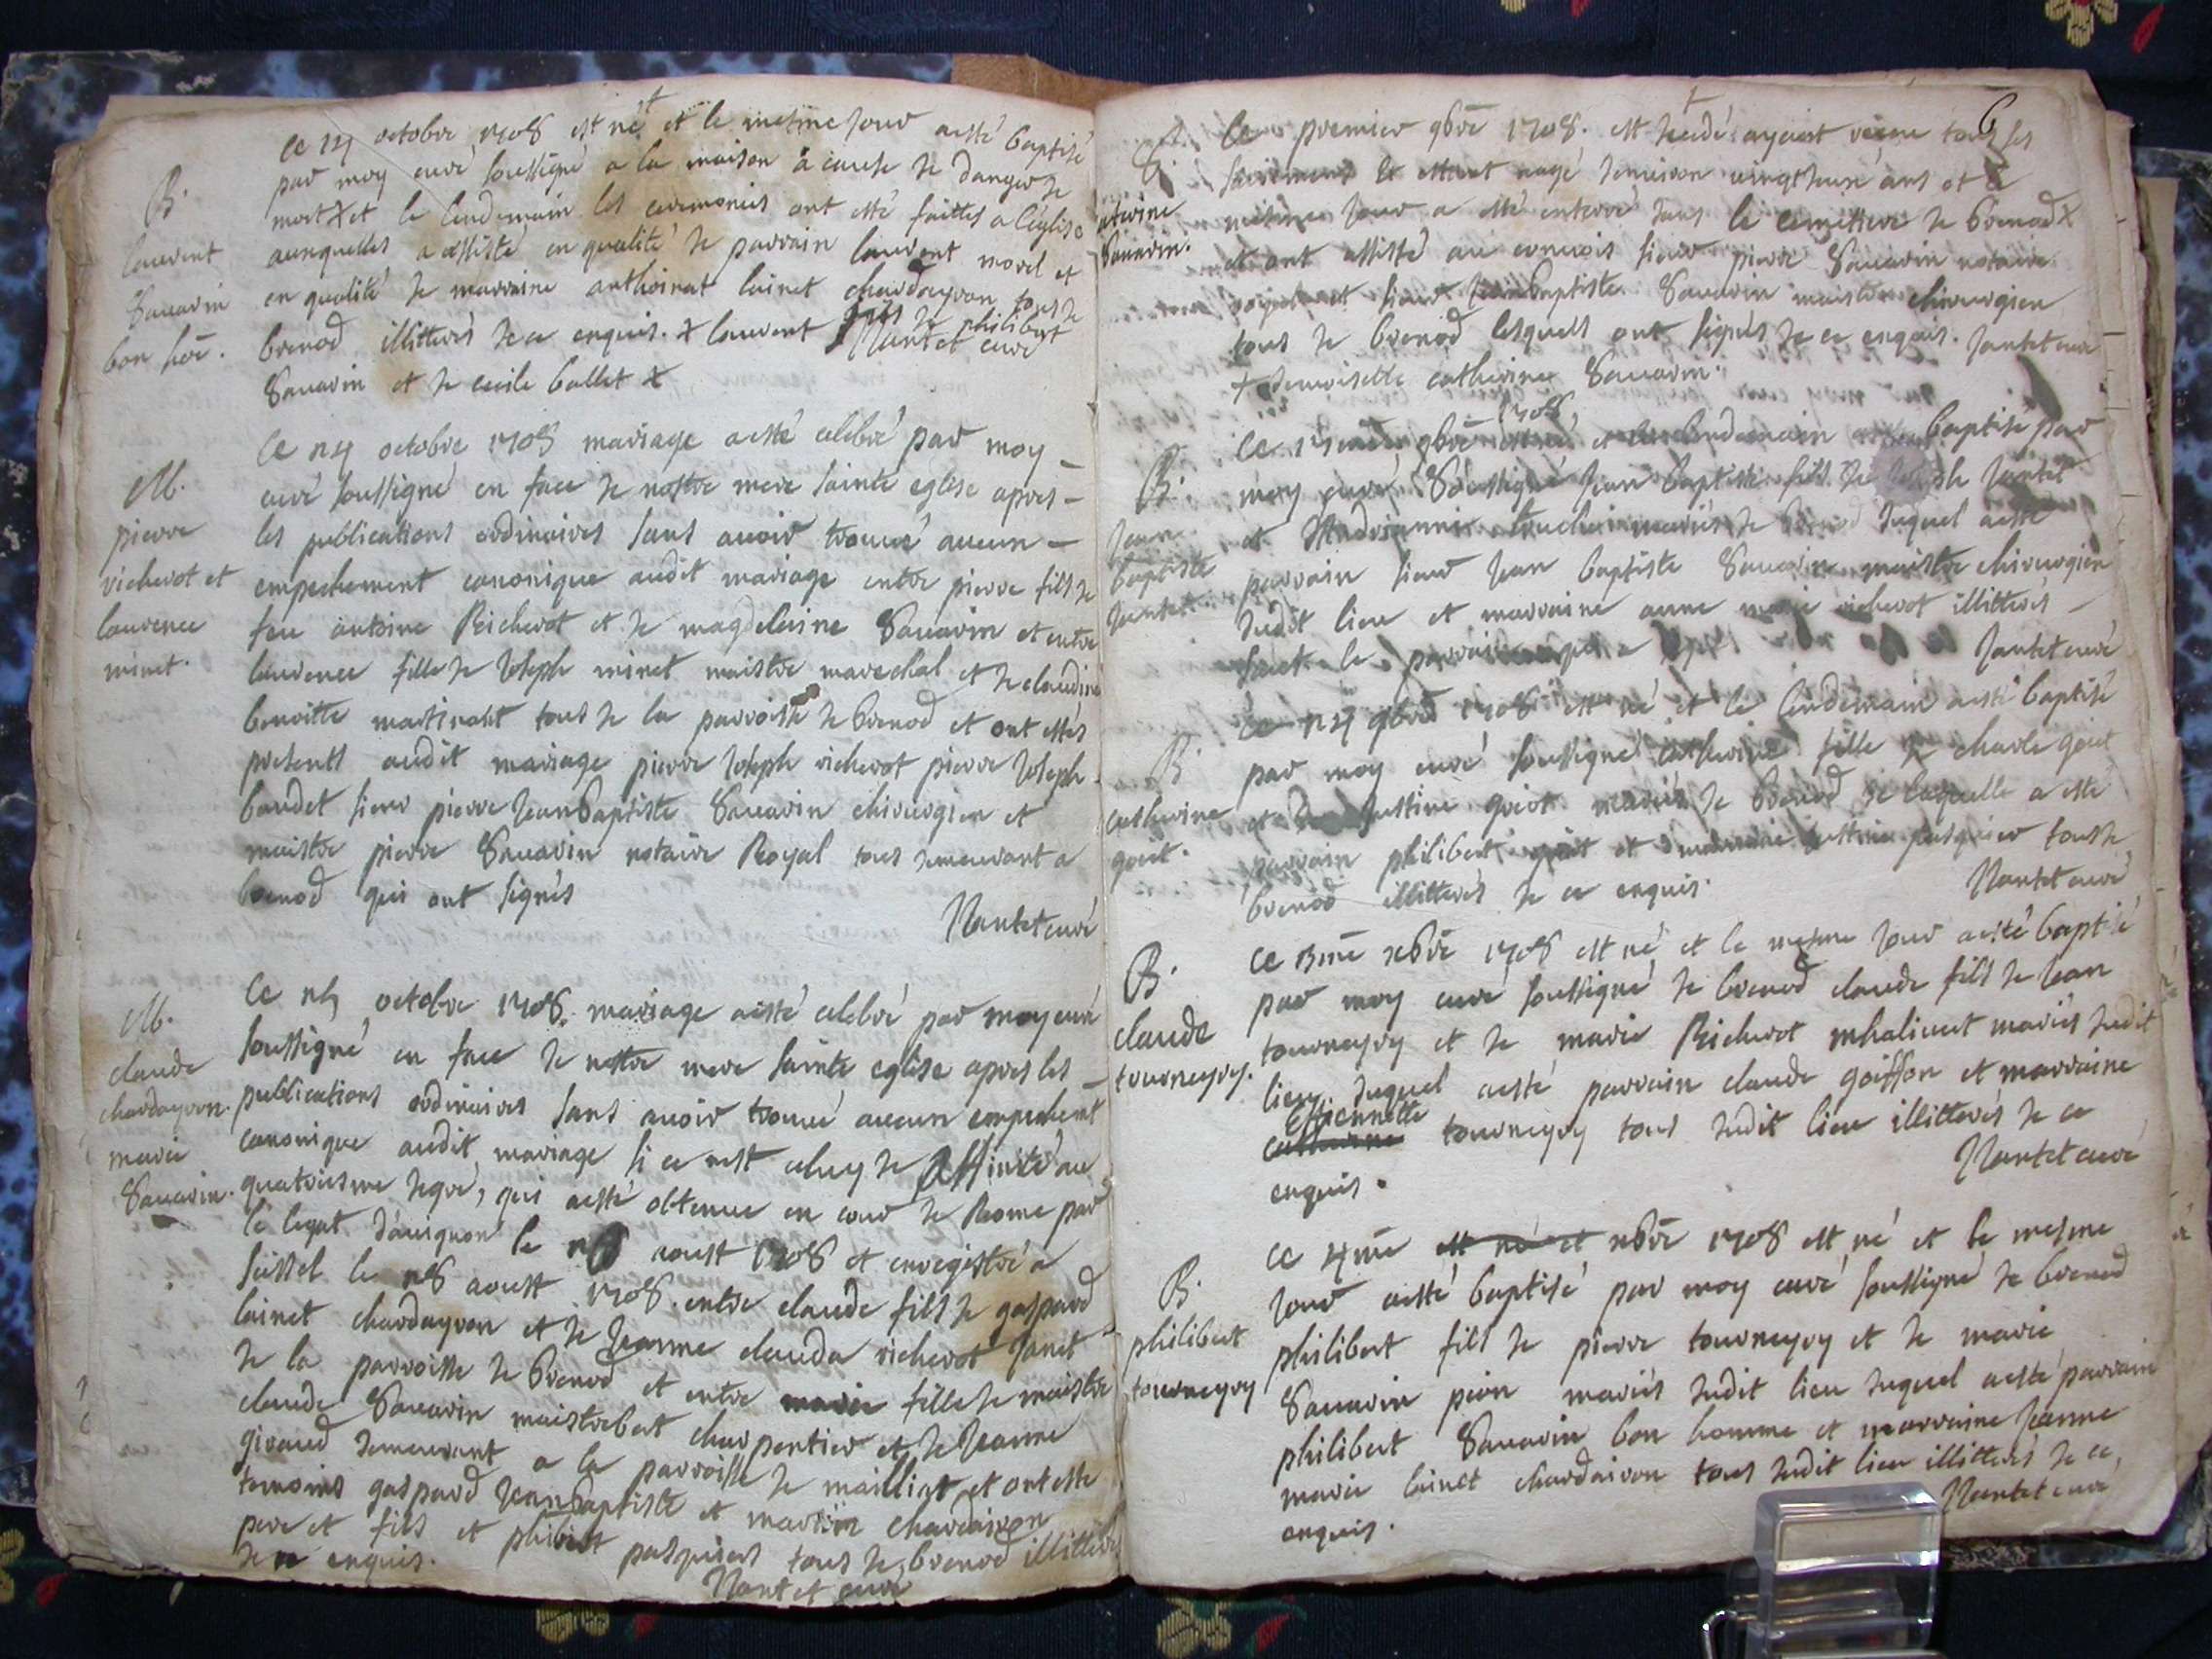 B.
Laurent
Sauarin
bon hōe.
Ce 24 octobre 1708 est né et le mesme jour aesté baptisé
par moy curé soussigné a la maison a cause de danger de
mort + et le lendemain les ceremonies ont esté faittes a l'eglise
ausquelles a assisté en qualité de parrain laurent morel et
en qualité de marraine anthoinat lainet chardayron tous de
brenod illitterés de ce enquis. + laurent fils de philibert
Nantet curé
Sauarin et de cecile ballet +
M.
pierre
richerot et
laurence
minet.
Ce octobre 1708 mariage aesté celebré par moy
curé soussigné en face de nostre mere sainte eglise apres
les publications ordinaires sans auoir trouué aucun
empechement canonique audit mariage entre pierre fils de
feu antoine Richerot et de magdelaine Sauarin et entre
laurence fille de Joseph minet maistre marechal et de claudine
tous de la parroisse de brenod et ont estés
presents audit mariage pierre Joseph richerot pierre Joseph
baudet sieur pierre Jean baptiste Sauarin chirurgien et
maistre pierre Sauarin notaire Royal tous demeurant a
brenod qui ont signés
Nantet curé
M.
claude
chardayron.
marie
Sauarin.
Ce octobre 1708. mariage aesté celebré par moy curé
soussigné en face de nostre mere sainte eglise apres les
publications ordinaires sans auoir trouué aucun empechemt
canonique audit mariage si ce nest celuy de affinité au
quatriesme degré, qui aesté obtenue en cour de Rome par
le legat d'auignon le aoust 1708 et enregistré a
le 28 aoust 1708. entre claude fils de gaspard
lainet chardayron et de Jeanne clauda richerot Janet
de la parroisse de brenod et entre marie fille de maistre
claude Sauarin charpentier et de Jeanne
giraud demeurant a la parroisse de mailliat et ont esté
temoins gaspard Jean baptiste et chardairon
pere et fils et philibert pasquier tous de brenod illitterés
de ce enquis.
Nantet curé
6
Sauarin.
Ce premier 9bre 1708. est decedé ayant receu tous ses
sacremens et estant aagé denuiron ans et le
mesme jour a esté enterré dans le cemetiere de brenod +
et ont assisté au conuois sieur pierre Sauarin notaire
royal et sieur Jean baptiste Sauarin maistre chirurgien
tous de brenod lesquels ont signés de ce enquis. Nantet curé
+ demoiselle catherine Sauarin.
B.
Jean
baptiste
Jantet
Ce 9bre 1708 est né et le lendemain aesté baptisé par
moy curé Soussigné Jean baptiste fils de Joseph Jantet
et mariés de brenod duquel aesté
parrain sieur Jean baptiste Sauarin maistre chirurgien
dudit lieu et marraine anne marie richerot illitterés
sauf le parrain
Nantet curé
B.
catherine
goiet.
Ce 24 9bre 1708 est né et le lendemain aesté baptisé
par moy curé soussigné catherine fille de charle goiet
et de Justine goiot mariés de brenod de laquelle a esté
parrain philibert goiet et marraine Justine pasquier tous de
brenod illitterés de ce enquis.
Nantet curé
B.
claude
tourneyry.
Ce 3me xbre 1708 est né et le mesme jour aesté baptisé
par moy curé soussigné de brenod claude fils de Jean
tourneyry et de marie Richerot mariés dudit
lieu duquel aesté parrain claude goiffon et marraine
Estiennette
catherine tourneyry tous dudit lieu illitterés de ce
enquis.
Nantet curé
B.
philibert
tourneyry
Ce 4me est né et xbre 1708 est né et le mesme
jour aesté baptisé par moy curé soussigné de brenod
philibert fils de pierre tourneyry et de marie
Sauarin mariés dudit lieu duquel aesté parrain
philibert Sauarin bon homme et marraine Jeanne
marie lainet chardairon tous dudit lieu illitterés de ce
enquis.
Nantet curé